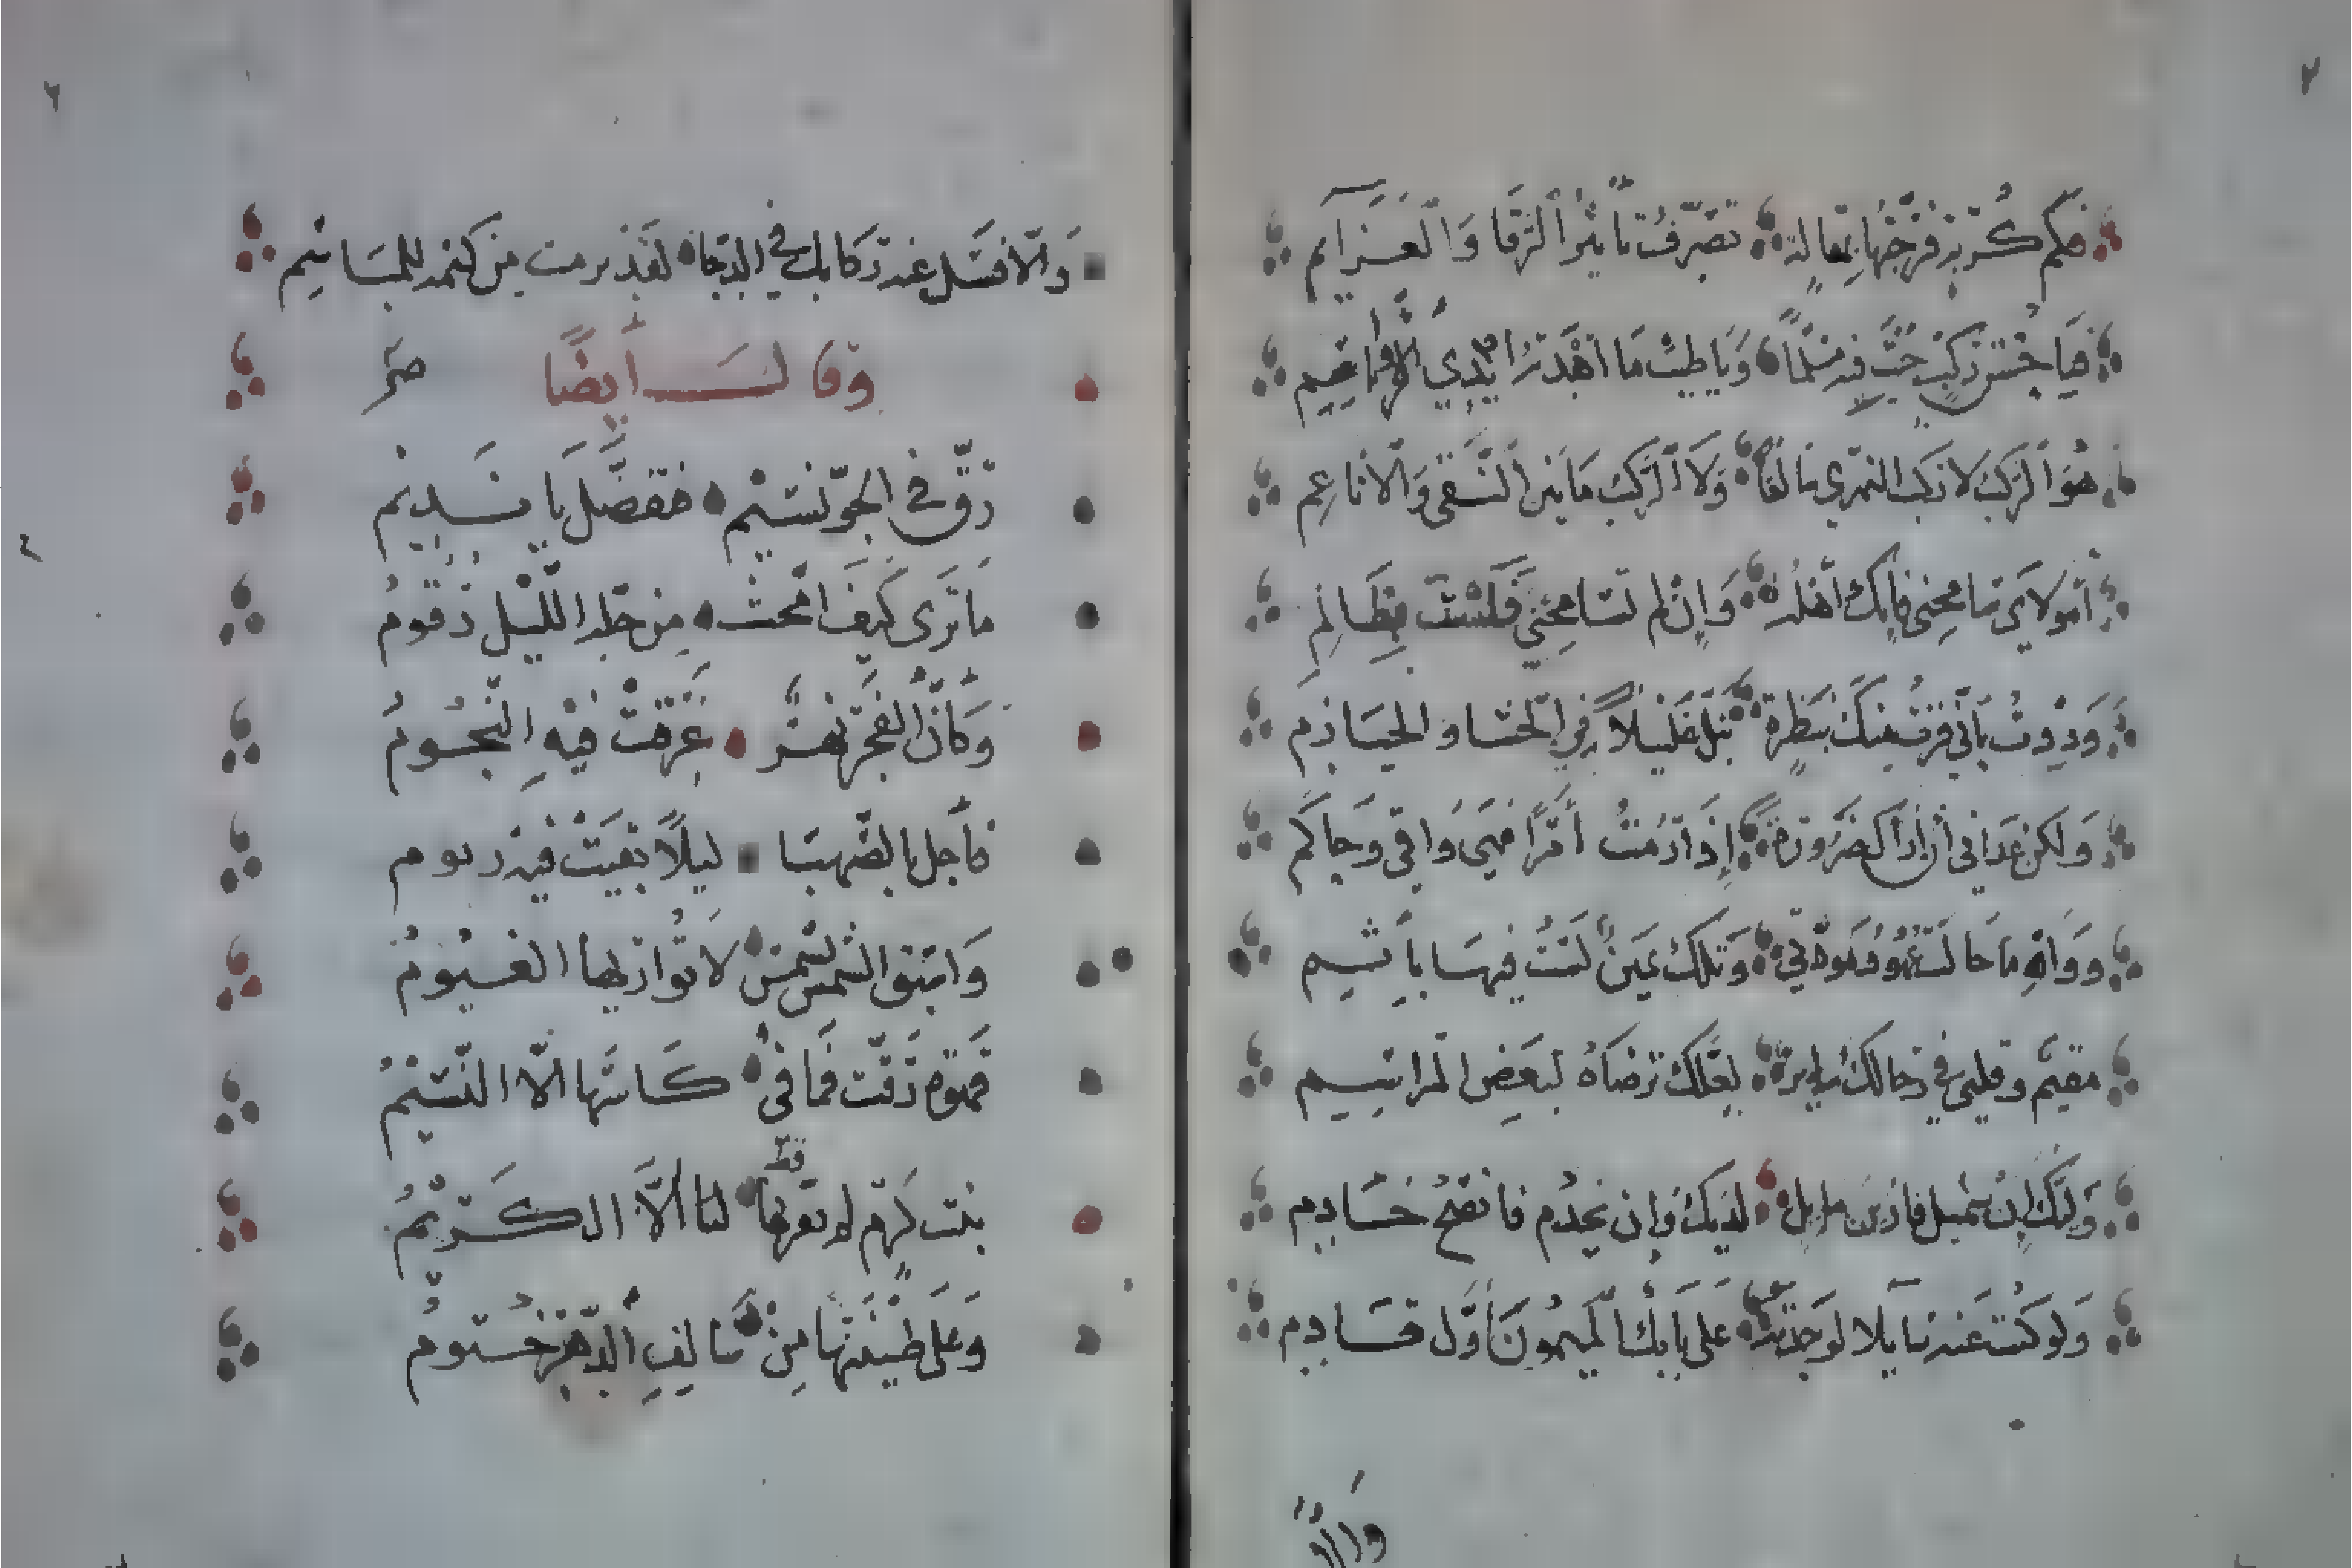 فكم كربة فرجتها بمقالة تصرف تأثير الرقا والعزايم
فيا حسن ركب جئت فيه مسلما ويا طيب ما أهدته أيدي الرواسم
هو الركب لا ركب النميري سالفا ولا الركب ما بين النقى والأناعم
أمولاي سامحني فإنك أهله وإن لم تسامحني فلست بظالم
وددت بأني فزت منك بنظرة تبل غليلا في الحشا والحيازم
ولكن عداني أن أراك ضرورة إذا رمت أمرا فهي واقي وحاكم
ووالله ما حالت عهود مودتي وتلك يمين لست فيها بآثم
مقيم وقلبي في رحالك ساير لعلك ترضاه لبعض المراسم
وليتك إن يمثل فازين ماثل لديك وإن يخدم فانصح خادم
ولو كنت عنه سايلا لوجدته على بابك الميمون أول قادم
والا
والا فسل عنه ركابك في الدجا لقد برمت من كثمه للمباسم
وقال أيضا
رق في الجو نسيم فتفضل يا نديم
ما ترى كيف امحت من جلد الليل رقوم
وكأن الفجر نهر غرقت فيه النجوم
فاجل بالصهبا ليلا بقيت فيه رسوم
وابتق الشمس لشمس لا تواريها الغيوم
قهوة رقت فما في كاسها الا النسيم
بنت كرم لم يهبها قط لنا الا الكريم
وعلى طينتها من سالف الدهر ختوم